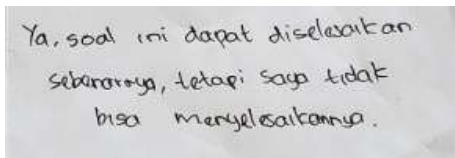 Ya, soal ini dapat diselesaikan
sebenarnya, tetapi saya tidak
bisa menyelesaikannya.